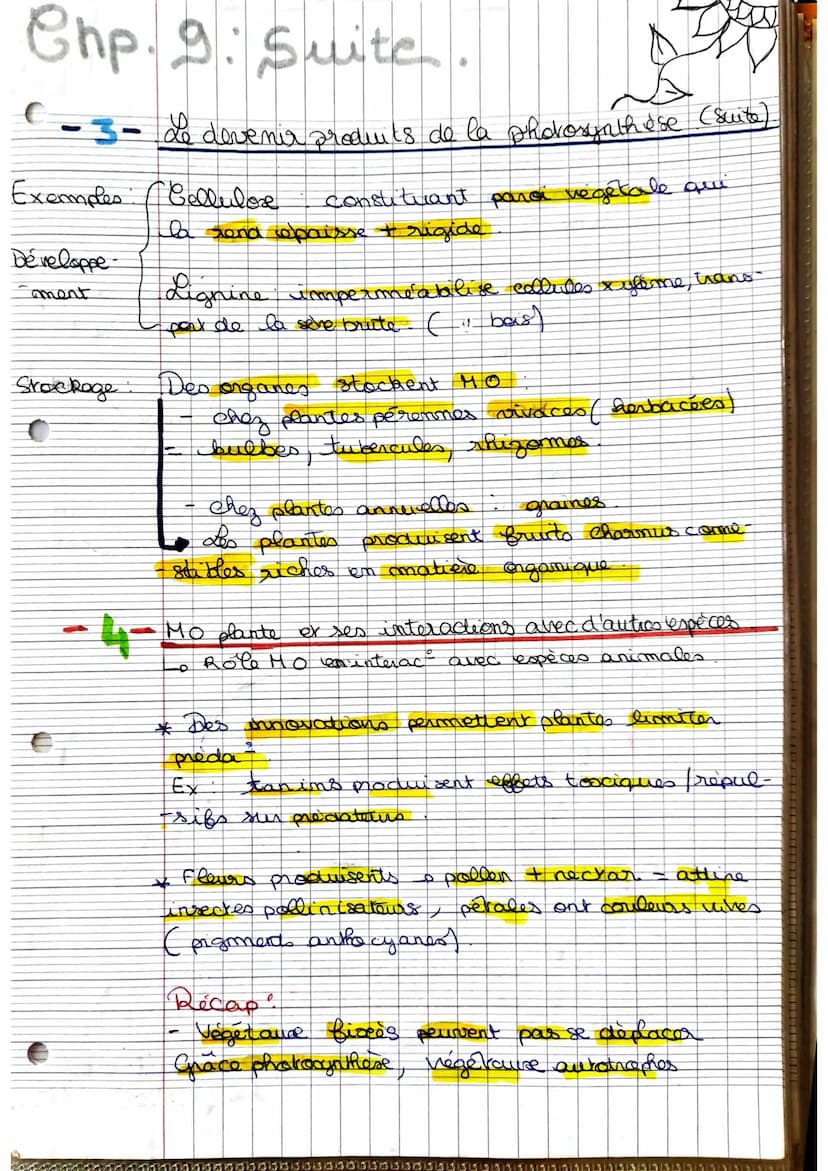 Chp. 9 : Suite.
- 3 - Le devenir produits de la photosynthèse (suite)
Exemples : Cellulose : constituant paroi végétale qui
la rend épaisse + rigide.
Développe-
-ment
Lignine : imperméabilise cellules xylème, trans-
-port de la sève brute. ( bois)
Stockage : Des organes stockent MO :
- chez plantes pérennes vivaces (herbacées)
= bulbes, tubercules, rhizomes.
- chez plantes annuelles : graines.
Les plantes produisent fruits charnus come-
-stibles riches en matière organique.
- 4 - MO plante et ses interactions avec d'autres espèces
↳ Rôle MO en interac° avec espèces animales.
* Des innovations permettent plantes limiter
préda°
Ex : tanins produisent effets toxiques / répul-
-sifs sur prédateurs.
* Fleurs produisents → pollen + nectar = attire
insectes pollinisateurs, pétales ont couleurs vives
(pigments anthocyanes).
Récap :
- Végétaux fixés peuvent pas se déplacer
Grâce photosynthèse, végétaux autotrophes